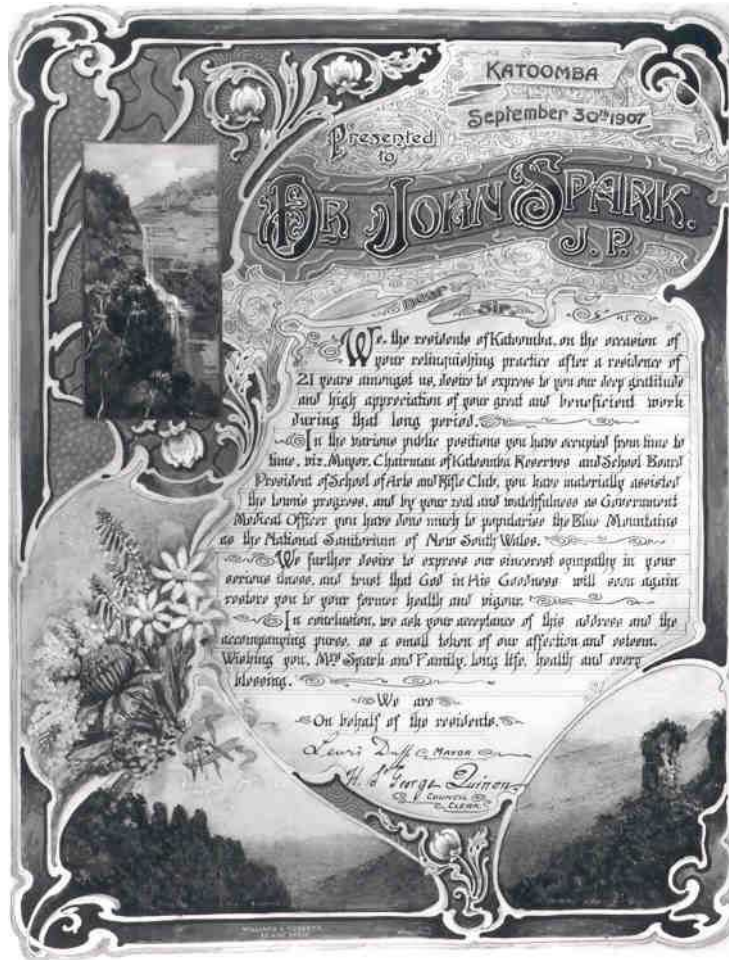 KATOOMBA
September 30th 1907
Presented
to
DR JOHN SPARK.
J.P.
Dear Sir,
We, the residents of Katoomba, on the occasion of
your relinquishing practice after a residence of
21 years amongst us, desire to express to you our deep gratitude
and high appreciation of your great and beneficient work
during that long period.
In the various public positions you have occupied from time to
time, viz, Mayor, Chairman of Katoomba Reserves and School Board
President of School of Arts and Rifle Club, you have materially assisted
the town's progress, and by your zeal and watchfulness as Government
Medical Officer you have done much to popularise the Blue Mountains
as the National Sanitorium of New South Wales.
We further desire to express our sincerest sympathy in your
serious illness, and trust that God in His Goodness will soon again
restore you to your former health and vigour.
In conclusion, we ask your acceptance of this address and the
accompanying purse, as a small token of our affection and esteem.
Wishing you, Mrs Spark and Family, long life, health and every
blessing.
We are
On behalf of the residents.
Lewis Duff MAYOR
H. St George Quinon
COUNCIL
CLERK